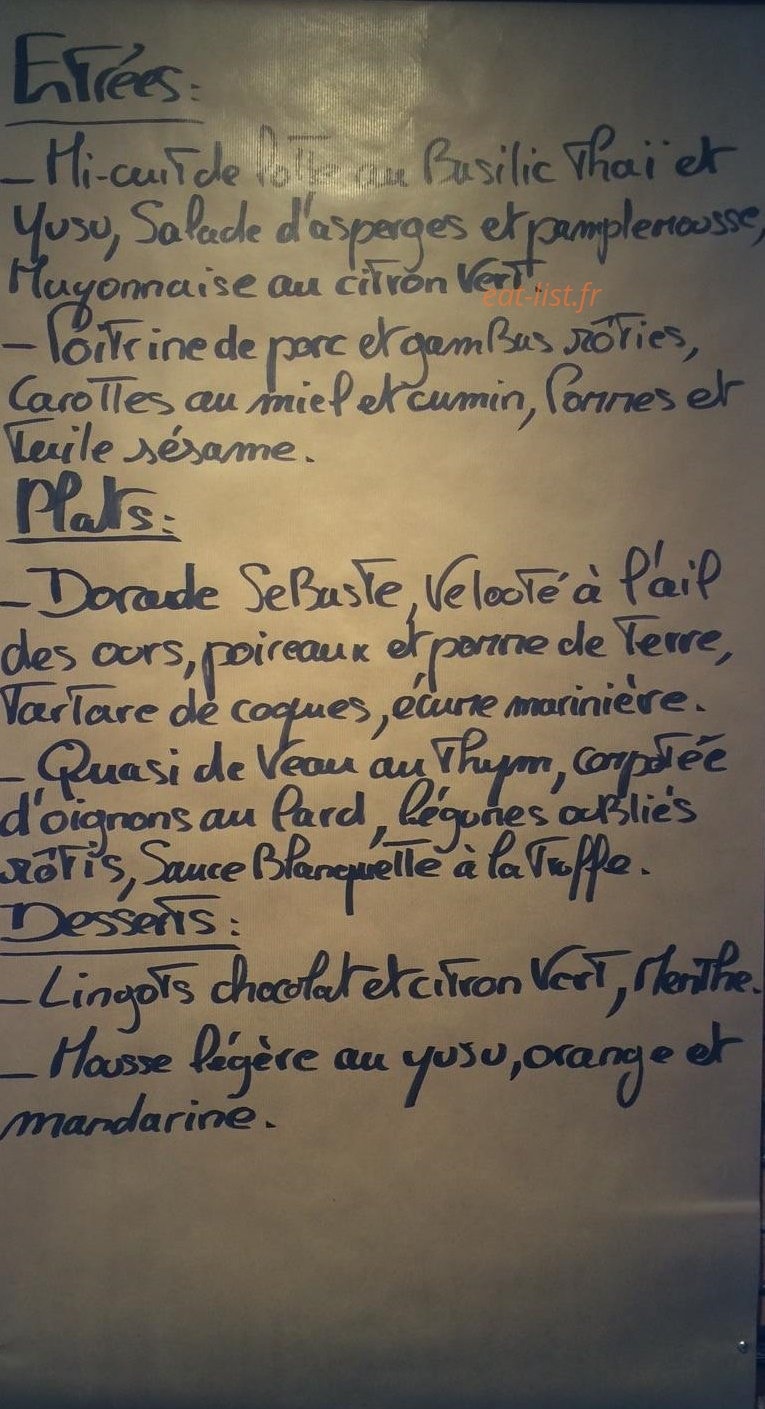 Entrées:
- Mi-cuit de au Basilic Thaï et
Yusu, Salade d'asperges et pamplemousse,
Mayonnaise au citron Vert.
eat-list.fr
- Poitrine de porc et gambas rôties,
Carottes au miel et cumin, Pommes et
Tuile sésame.
Plats:
- Dorade Sebaste, Velouté à l'ail
des ours, poireaux et pomme de Terre,
Tartare de coques, écume marinière.
- Quasi de Veau au Thym, compotée
d'oignons au lard, légumes oubliés
rôtis, Sauce Blanquette à la Truffe.
Desserts:
- Lingots chocolat et citron Vert, Menthe.
- Mousse légère au yusu, orange et
mandarine.